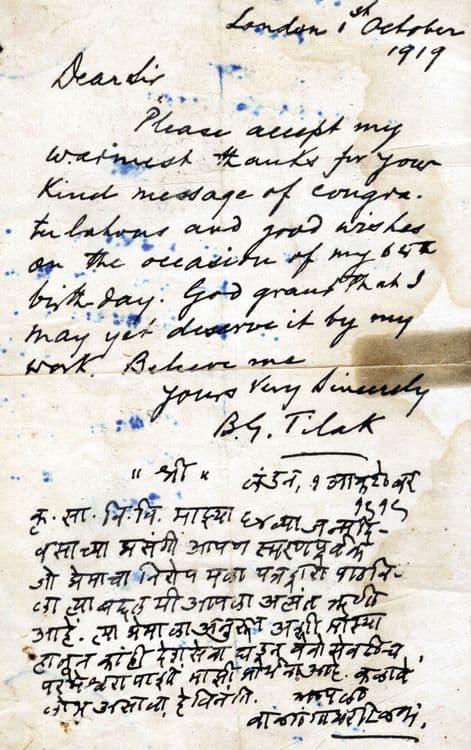 London 1st October
1919
Dear Sir
Please accept my
warmest thanks for your
kind message of congra-
tulations and good wishes
on the occasion of my 64th
birthday. God grant that I
may yet deserve it by my
work. Believe me
Yours Very Sincerely
B.G. Tilak
"श्री" लंडन, १ आक्टोबर
१९१९
कृ. सा. वि. वि. माझ्या ६४व्या जन्मदि-
वसाच्या प्रसंगी आपण स्मरणपूर्वक
जो प्रेमाचा निरोप मला पत्रद्वारा पाठवि-
ला त्याबद्दल मी आपला अत्यंत ऋणी
आहें. त्या प्रेमाला अनुरूप अशी माझ्या
हातून कांहीं देशसेवा घडून येवो
परमेश्वरापाशी माझी प्रार्थना आहे. कळावे
लोभ असावा, हे विनंति. आपला
बाळ गंगाधर टिळक.